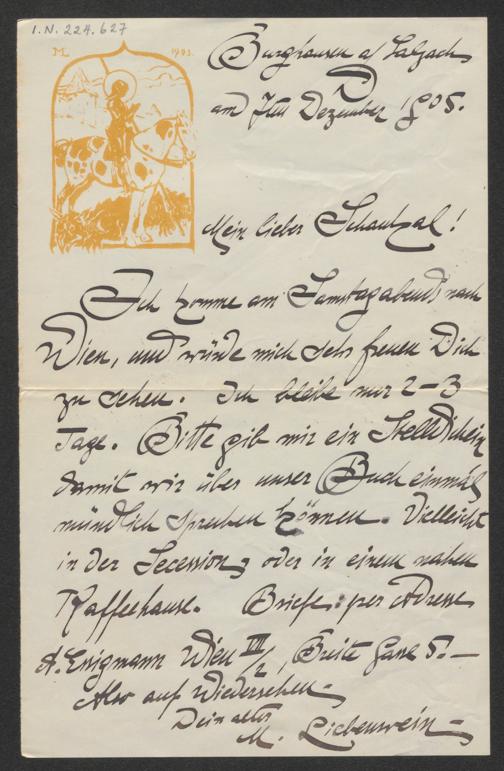 I.N. 224.627
ML 1903.
Burghausen a/ Salzach
am 7ten Dezember 1905.
Mein lieber Schaukal!
Ich komme am Samstag abend, nach
Wien, und würde mich sehr freuen Dich
zu sehen. Ich bleibe nur 2-3
Tage. Bitte gib mir ein Stelldichein
damit wir über unser Buch einmal
mündlich sprechen können. Vielleicht
in der Secession, oder in einem nahen
Kaffeehause. Briefe: per Adresse
A. Enigmann Wien VII/2, Breite Gasse 5.-
Also auf Wiedersehen-
Dein alter
M. Liebenwein-